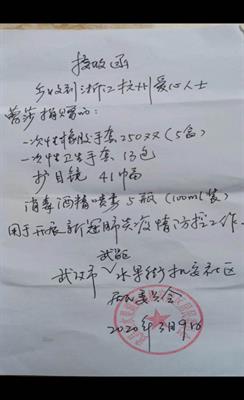 接收函
今收到浙江杭州爱心人士
蒋莎捐赠的:
一次性橡胶手套250双(5盒)
一次性卫生手套13包
护目镜41幅
消毒酒精喷雾5瓶(100ml装)
用于开展新冠肺炎疫情防控工作。
武昌区
武汉市 水果湖街 社区
居民委员会
2020年3月9日